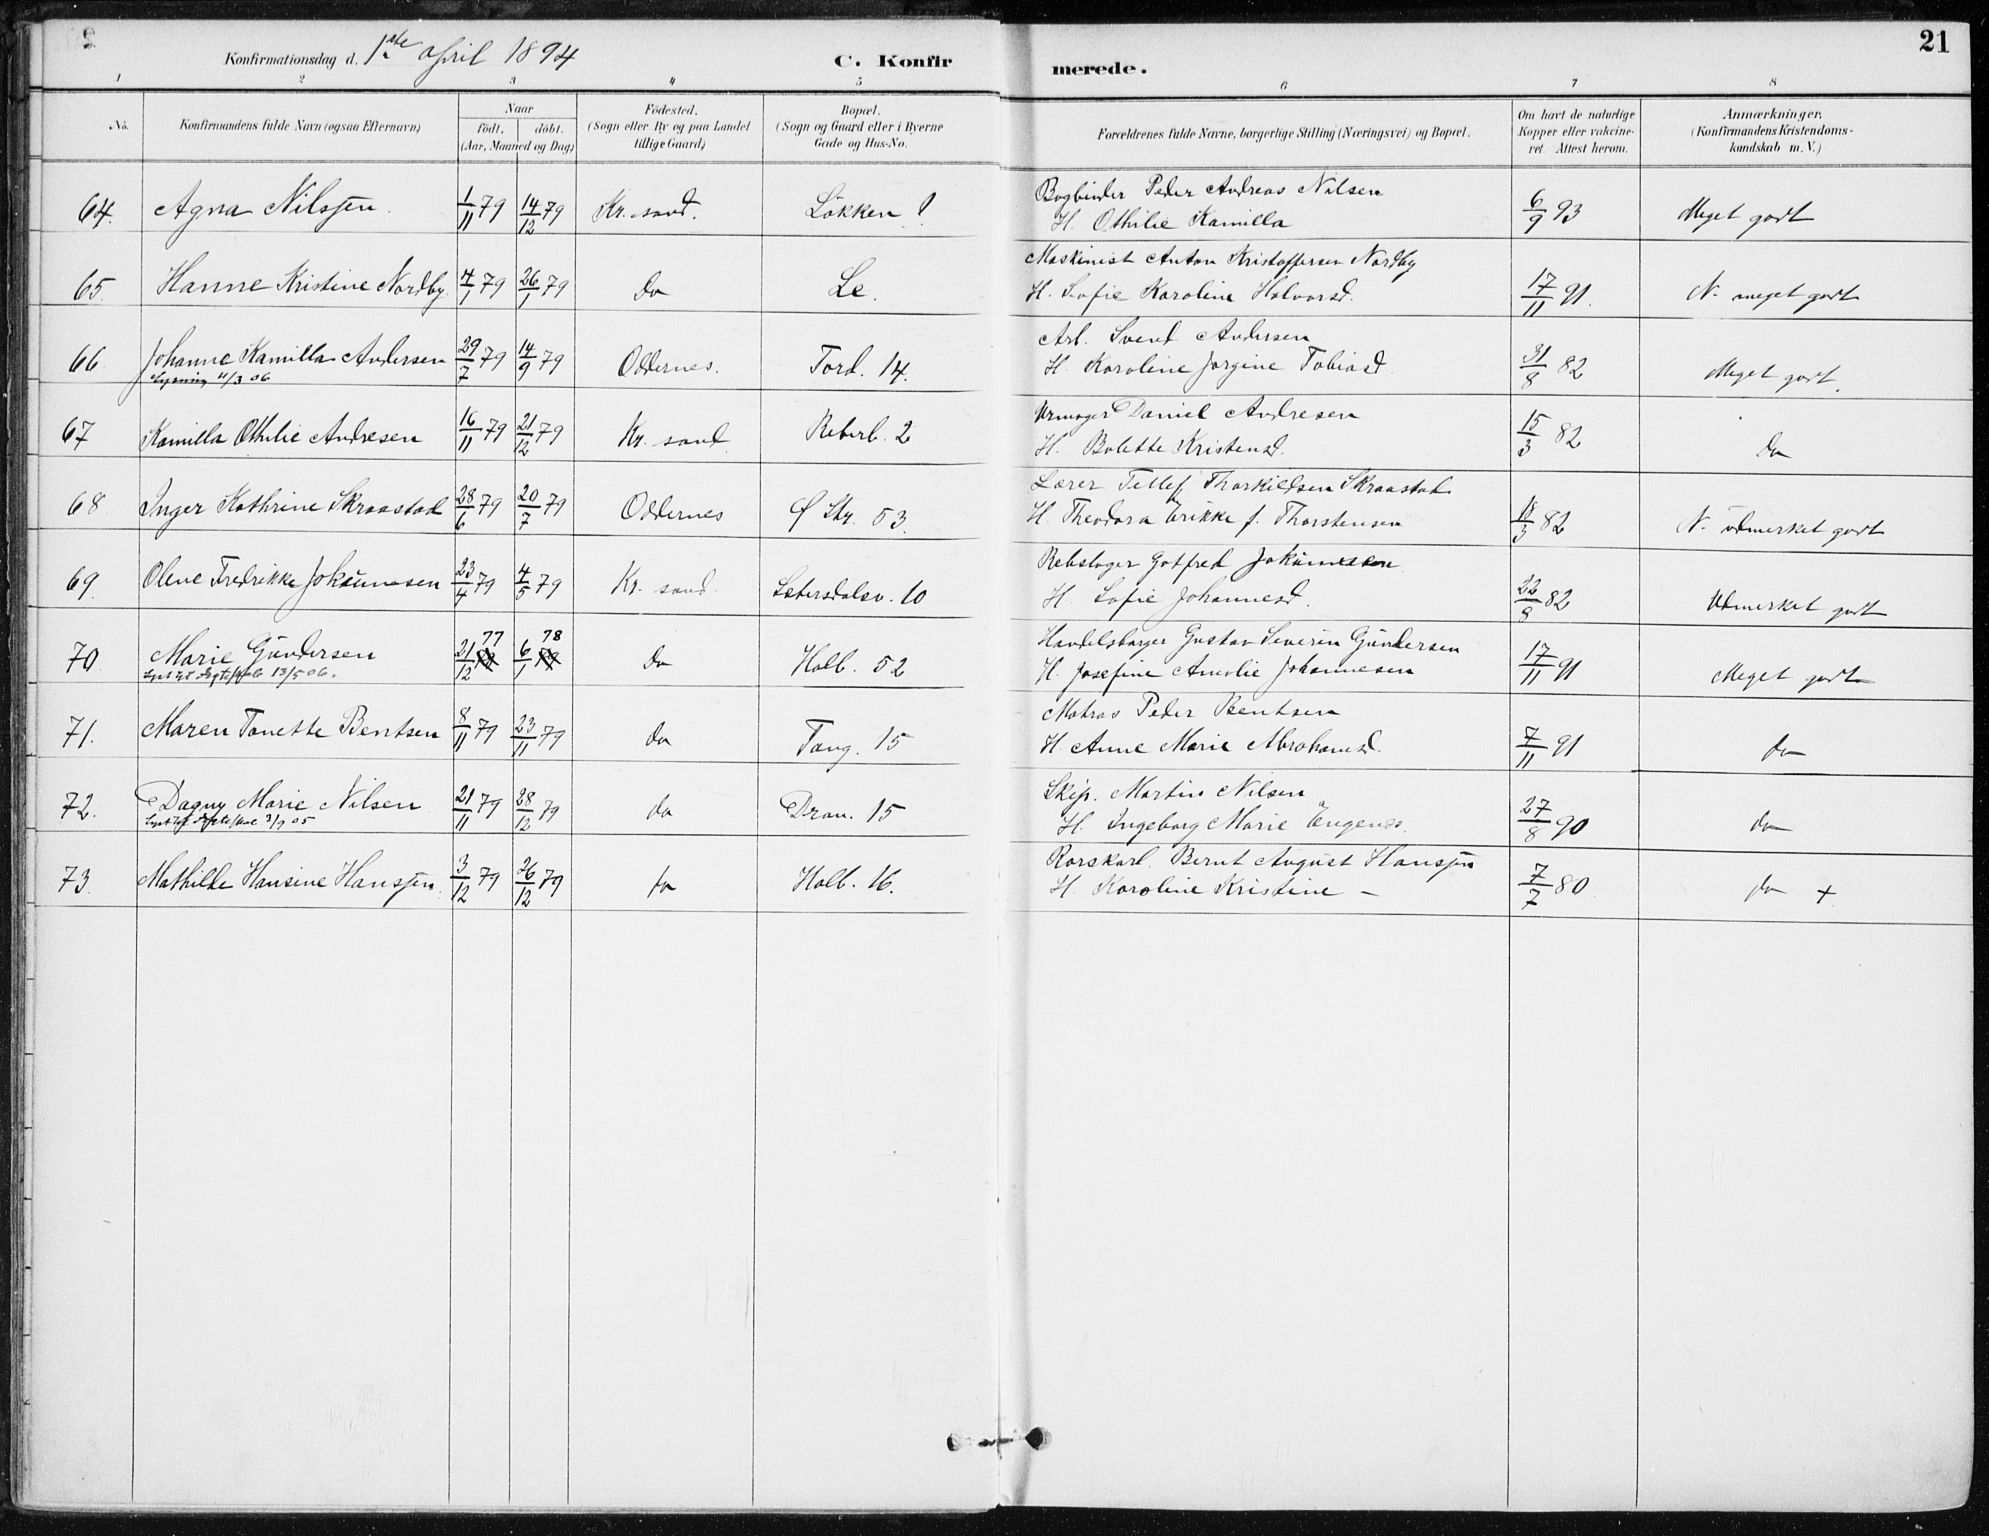 Konfirmationsdag d. 1ste april 1894 C. Konfirmerede. 21
1 2 3 4 5 6 7 8
No. Konfirmandens fulde Navn (ogsaa Efternavn) Naar født. døbt. (Aar, Maaned og Dag) Fødested. (Sogn eller By og paa Landet tillige Gaard) Bopæl. (Sogn og Gaard eller i Byerne Gade og Hus-No. Forældrenes fulde Navne, borgerlige Stilling (Næringsvei) og Bopæl. Om havt de naturlige Kopper eller vakcineret. Attest herom. Anmærkninger. (Konfirmandens Kristendomskundskab m. V.)
64. Agna Nilssen. 1/11 79 14/12 79 Kr. sand. Løkken ! Bogbinder Peder Andreas Nilsen 6/9 93 Meget godt
H. Othilie Kamilla
65. Hanne Kristine Nordby 4/1 79 26/1 79 do Le. Maskinist Anton Kristoffersen Nordby 17/11 91. N. meget godt
H. Sofie Karoline Halvorsd.
66 Johanne Kamilla Andersen 29/7 79 14/9 79 Oddernes. Tord. 14. Arb. Svend Andersen 31/8 82 Meget godt.
Lysning 11/3 06 H. Karoline Jorgine Tobiasd.
67 Kamilla Othilie Andresen 16/11 79 21/12 79 Kr. sand Reberb. 2 Urmager Daniel Andresen 15/3 82 do
H. Bolette Kristensd.
68 Inger Kathrine Skraastad 28/6 79 20/7 79 Oddernes Ø Str. 53. Lærer Tellef Thorkildsen Skraastad 18/3 82 N. udmerket godt
H. Theodora Erikke f. Thorstensen
69. Olene Fredrikke Johannesen 23/4 79 4/5 79 Kr. sand. Setersdalsv. 10 Rebslager Gotfred Johannesen 22/8 82 Udmerket godt
H. Sofie Johannesd.
70. Marie Gundersen 21/12 77 6/1 78 do Holb. 52 Handelsborger Gustav Severin Gundersen 17/11 91 Meget godt
Lyst til Ægteskab 13/5 06. H. Josefine Amalie Johannesen
71. Maren Tonette Bentsen 8/11 79 23/11 79 do Tang. 15 Matros Peder Bentsen 7/11 91 do
H. Anne Marie Abrahamsd.
72. Dagny Marie Nilsen 21/11 79 28/12 79 do Dron. 15 Skip. Martin Nilsen 27/8 90 do
Lyst til Ægteskab 3/9 05 H. Ingeborg Marie Engenes.
73. Mathilde Hansine Hanssen. 3/12 79 26/12 79 do Holb. 16. Rorskarl. Bernt August Hanssen 7/7 80 do +
H. Karoline Kristine –